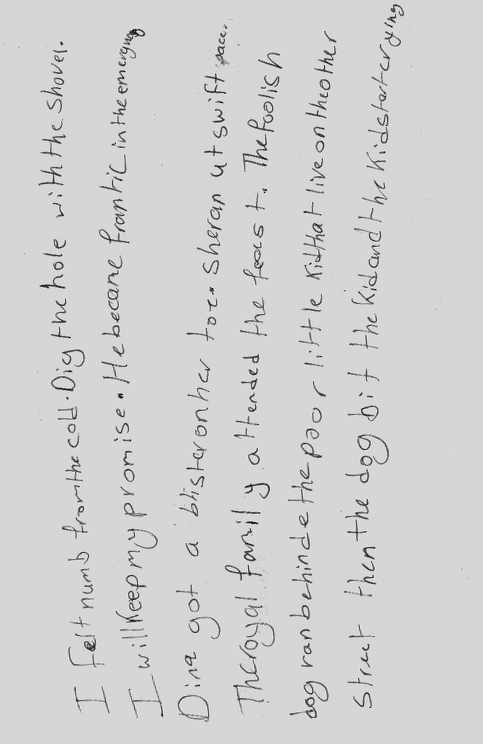 I felt numb from the cold. Dig the hole with the shovel.
I will keep my promise. He became frantic in the emerging
Dina got a blister on her toe. She ran ut swift pace.
The royal family attended the feast. The foolish
dog ran behinde the poor little kid that live on the other
street then the dog bit the kid and the kid start crying